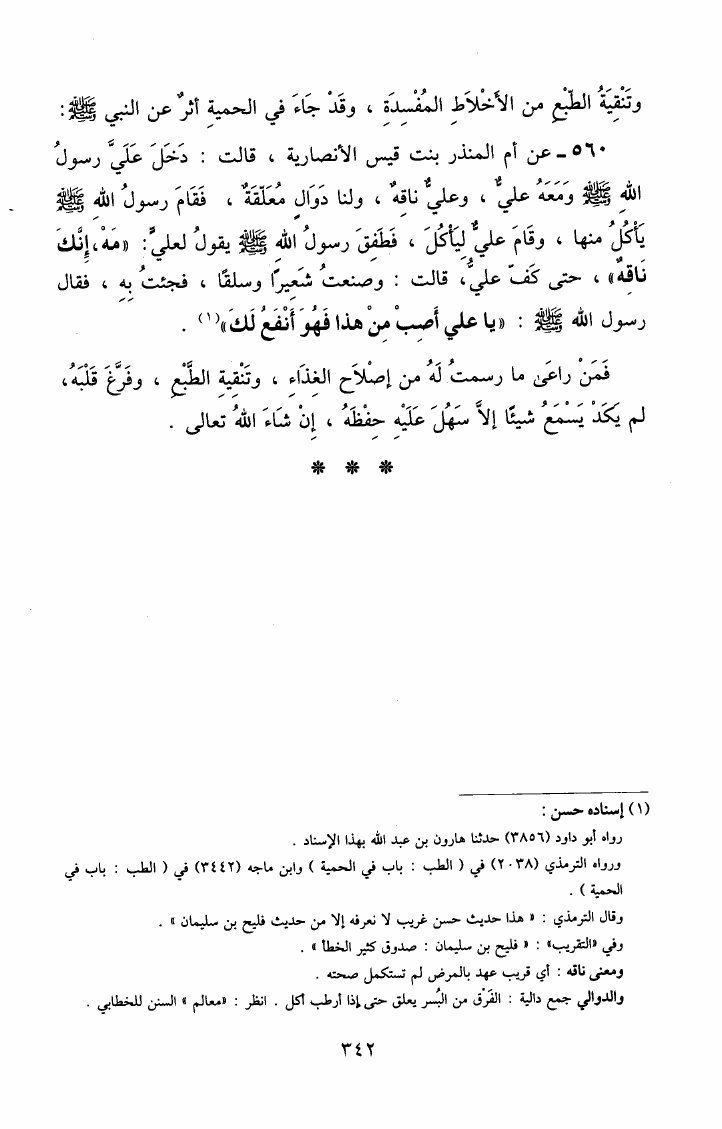 وتَنْقِيَةُ الطّبْعِ من الأَخْلاَطِ المُفْسِدَةِ ، وقَدْ جَاءَ في الحميةِ أثرٌ عن النبي ﷺ :
٥٦٠ - عن أم المنذر بنت قيس الأنصارية ، قالت : دَخَلَ عَلَيَّ رسولُ
اللهِ ﷺ وَمَعَهُ عليٌّ ، وعليٌّ ناقهٌ ، ولنا دَوَالٍ مُعَلّقَةٌ ، فَقَامَ رسولُ اللهِ ﷺ
يَأْكُلُ منها ، وقَامَ عليٌّ ليَأْكُلَ ، فَطَفِقَ رسولُ اللهِ ﷺ يقولُ لعليٍّ: «مَهْ، إِنَّكَ
نَاقِهٌ» ، حتى كَفّ عليٌّ، قالت : وصنعتُ شَعِيرًا وسلقًا ، فجئتُ بِهِ ، فقال
رسول الله ﷺ : «يا علي أَصِبْ مِنْ هذا فَهُوَ أَنْفَعُ لَكَ»(١) .
فَمَنْ راعَىٰ ما رسمتُ لَهُ من إصْلاَحِ الغِذَاءِ ، وتَنْقِيةِ الطَّبْعِ ، وفَرَّغَ قَلْبَهُ،
لم يَكَدْ يَسْمَعُ شيئًا إلاَّ سَهُلَ عَلَيْهِ حِفْظَهُ ، إنْ شَاءَ اللهُ تعالى .
* * *
(١) إسناده حسن :
رواه أبو داود (٣٨٥٦) حدثنا هارون بن عبد الله بهذا الإسناد .
ورواه الترمذي (٢٠٣٨) في ( الطب : باب في الحمية ) وابن ماجه (٣٤٤٢) في ( الطب : باب في
الحمية ) .
وقال الترمذي : « هذا حديث حسن غريب لا نعرفه إلا من حديث فليح بن سليمان » .
وفي «التقريب» : « فليح بن سليمان : صدوق كثير الخطأ » .
ومعنى ناقه : أي قريب عهد بالمرض لم تستكمل صحته .
والدوالي جمع دالية : الفَرْق من البُسر يعلق حتى إذا أرطب أكل . انظر : «معالم » السنن للخطابي .
٣٤٢